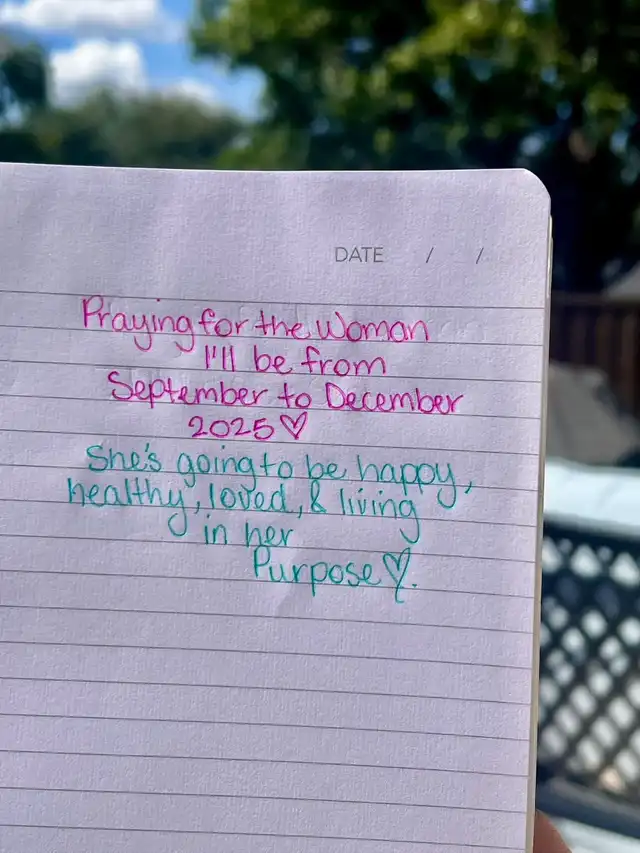 DATE / /
Praying for the Woman
I'll be from
September to December
2025♡
She's going to be happy,
healthy, loved, & living
in her
Purpose♡.